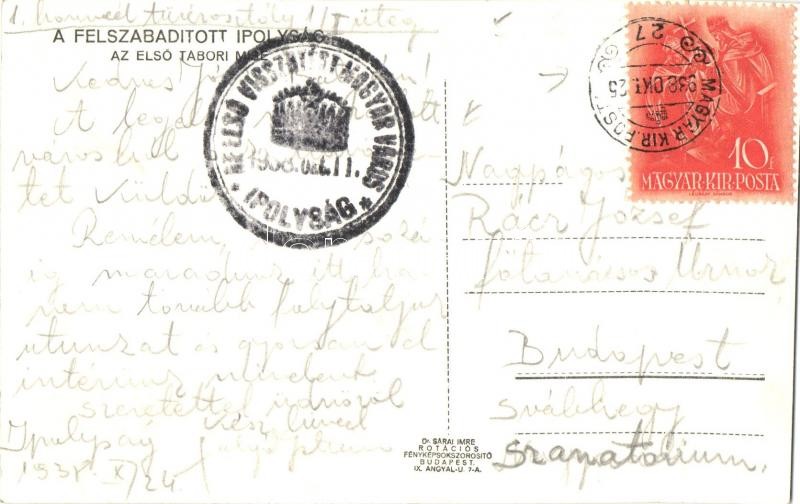 1. honvéd tüzérosztály 1/I üteg
A FELSZABADITOTT IPOLYSÁG
AZ ELSŐ TÁBORI MISE
Kedves
A
városból
tet küldö
Remélem,
ig maradunk itt ha
nem tovább folytatjuk
utunkat és gyorsan el
intézünk mindent
szeretettel üdvözöl
Ipolyság
1938. X/24.
AZ ELSŐ VISSZATÉRT MAGYAR VÁROS
1938. Okt. 11.
IPOLYSÁG
MAGYAR KIR. POSTA
938 OKT. 26
27
10 F
MAGYAR·KIR·POSTA
Nagyságos
Rácz József
főtanácsos Úrnak,
Budapest
Svábhegy
Szanatórium.
Dr. SÁRAI IMRE
ROTÁCIÓS
FÉNYKÉPSOKSZOROSITÓ
BUDAPEST.
IX. ANGYAL-U. 7-A.